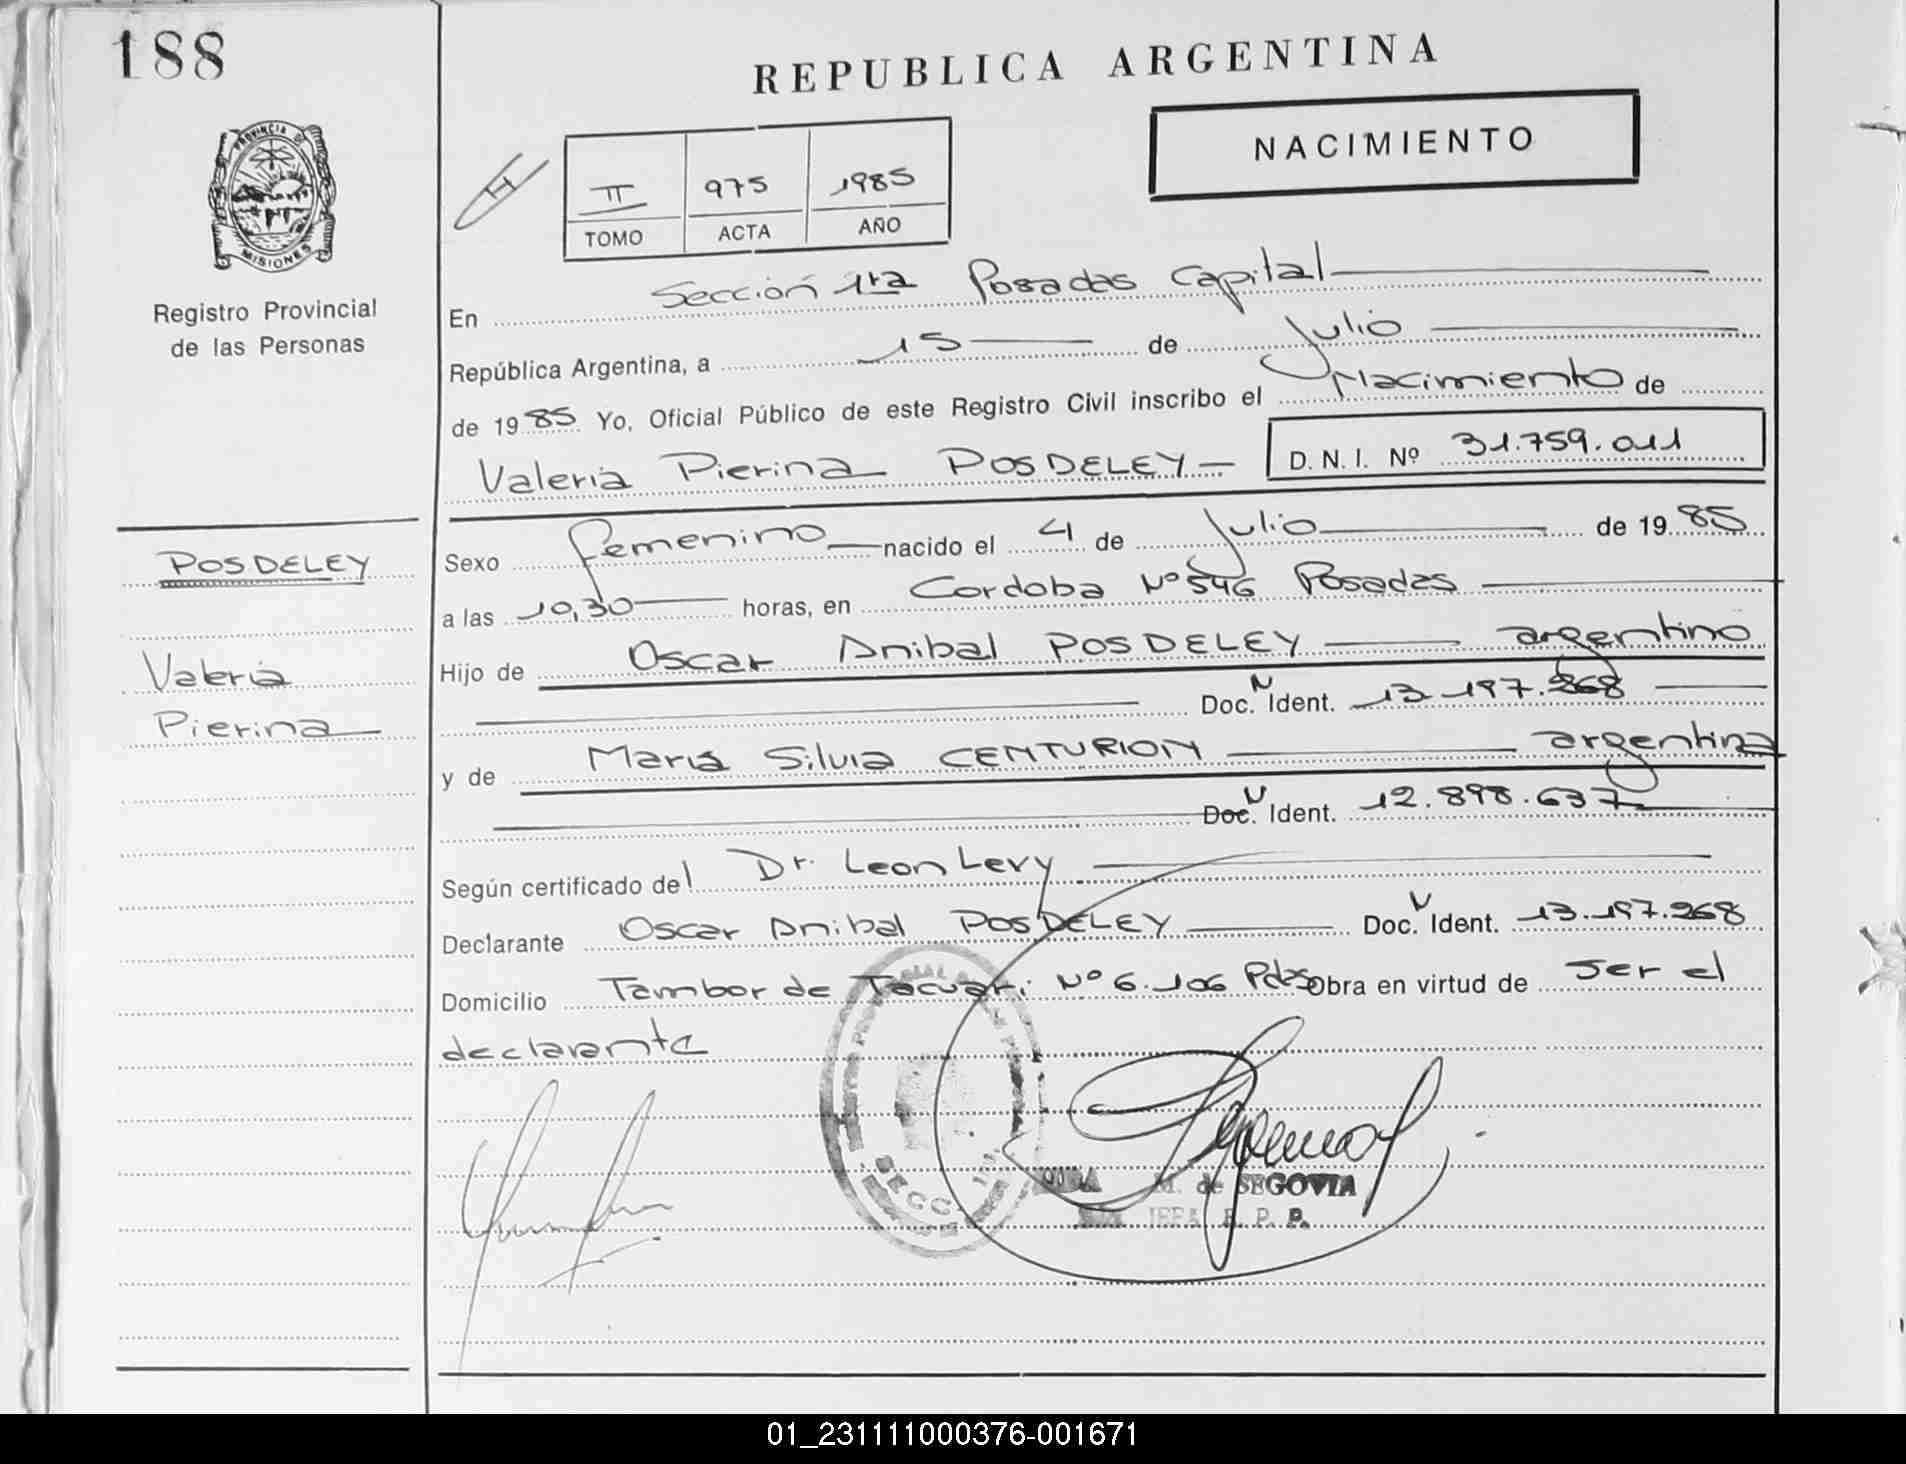 188
REPUBLICA ARGENTINA
NACIMIENTO
PROVINCIA DE
MISIONES
Registro Provincial
de las Personas
II 975 1985
TOMO ACTA AÑO
En Sección 1ra Posadas Capital
República Argentina, a 15 de Julio
de 1985 Yo, Oficial Público de este Registro Civil inscribo el Nacimiento de
Valeria Pierina POSDELEY D. N. I. Nº 31.759.011
POSDELEY
Valeria
Pierina
Sexo femenino nacido el 4 de Julio de 1985
a las 10,30 horas, en Cordoba Nº 546 Posadas
Hijo de Oscar Anibal POSDELEY argentino
Doc. N Ident. 13.197.268
y de Maria Silvia CENTURION argentina
Doc. N Ident. 12.898.637
Según certificado del Dr. Leon Levy
Declarante Oscar Anibal POSDELEY Doc. N Ident. 13.197.268
Domicilio Tambor de Tacuari Nº 6.106 Pdas Obra en virtud de ser el
declarante
SECC. 1ra.
M. de SEGOVIA
JEFA R. P. P.
01_231111000376-001671